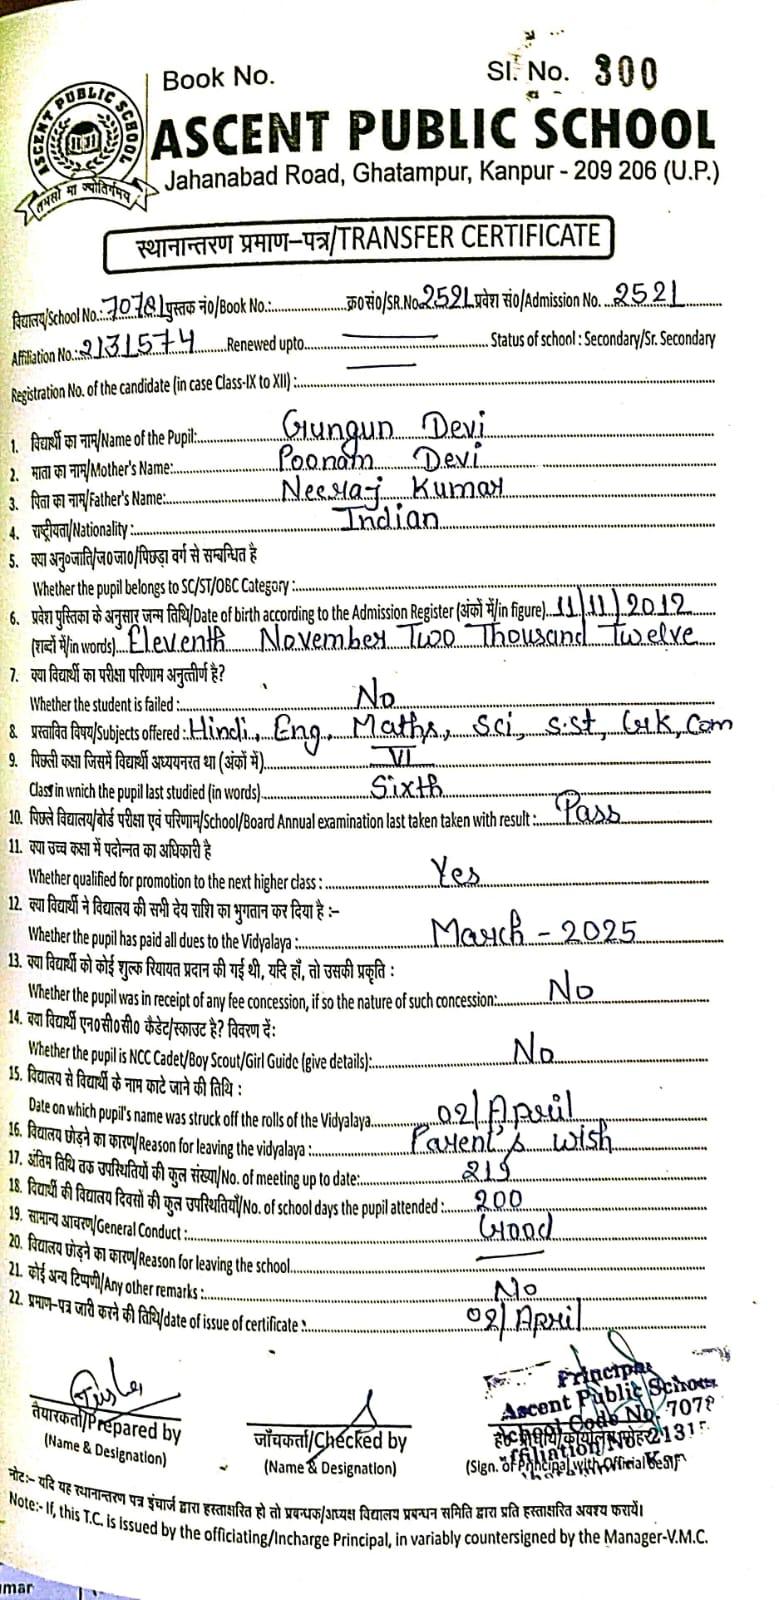 Book No. Sl. No. 300
ASCENT PUBLIC SCHOOL
तमसो मा ज्योतिर्गमय
ASCENT PUBLIC SCHOOL
Jahanabad Road, Ghatampur, Kanpur - 209 206 (U.P.)
स्थानान्तरण प्रमाण-पत्र/TRANSFER CERTIFICATE
विद्यालय/School No.: 70781 पुस्तक नं०/Book No.: क्र०सं०/SR.No. 2521 प्रवेश सं०/Admission No. 2521
Affiliation No.: 2131574 Renewed upto Status of school : Secondary/Sr. Secondary
Registration No. of the candidate (in case Class-IX to XII) :
1. विद्यार्थी का नाम/Name of the Pupil: Gungun Devi
2. माता का नाम/Mother's Name: Poonam Devi
3. पिता का नाम/Father's Name: Neeraj Kumar
4. राष्ट्रीयता/Nationality : Indian
5. क्या अनु०जाति/ज०जा०/पिछड़ा वर्ग से सम्बन्धित है
Whether the pupil belongs to SC/ST/OBC Category :
6. प्रवेश पुस्तिका के अनुसार जन्म तिथि/Date of birth according to the Admission Register (अंकों में/in figure) 11/11/2012
(शब्दों में/in words) Eleventh November Two Thousand Twelve
7. क्या विद्यार्थी का परीक्षा परिणाम अनुत्तीर्ण है?
Whether the student is failed : No
8. प्रस्तावित विषय/Subjects offered : Hindi, Eng, Maths, Sci, S.St, Gk, Com
9. पिछली कक्षा जिसमें विद्यार्थी अध्ययनरत था (अंकों में) VI
Class in wnich the pupil last studied (in words) Sixth
10. पिछले विद्यालय/बोर्ड परीक्षा एवं परिणाम/School/Board Annual examination last taken taken with result : Pass
11. क्या उच्च कक्षा में पदोन्नत का अधिकारी है
Whether qualified for promotion to the next higher class : Yes
12. क्या विद्यार्थी ने विद्यालय की सभी देय राशि का भुगतान कर दिया है :-
Whether the pupil has paid all dues to the Vidyalaya : March - 2025
13. क्या विद्यार्थी को कोई शुल्क रियायत प्रदान की गई थी, यदि हाँ, तो उसकी प्रकृति :
Whether the pupil was in receipt of any fee concession, if so the nature of such concession: No
14. क्या विद्यार्थी एन०सी०सी० कैडेट/स्काउट है? विवरण दें:
Whether the pupil is NCC Cadet/Boy Scout/Girl Guide (give details): No
15. विद्यालय से विद्यार्थी के नाम काटे जाने की तिथि :
Date on which pupil's name was struck off the rolls of the Vidyalaya 02/April
16. विद्यालय छोड़ने का कारण/Reason for leaving the vidyalaya : Parent's wish
17. अंतिम तिथि तक उपस्थितियों की कुल संख्या/No. of meeting up to date: 219
18. विद्यार्थी की विद्यालय दिवसों की कुल उपस्थितियाँ/No. of school days the pupil attended : 200
19. सामान्य आचरण/General Conduct : Good
20. विद्यालय छोड़ने का कारण/Reason for leaving the school
21. कोई अन्य टिप्पणी/Any other remarks : No
22. प्रमाण-पत्र जारी करने की तिथि/date of issue of certificate : 02/April
Principal
Ascent Public School
School Code No. 7078
Affiliation No. 21315
तैयारकर्ता/Prepared by
(Name & Designation)
जाँचकर्ता/Checked by
(Name & Designation)
(Sign. of Principal with Official Seal)
नोट:- यदि यह स्थानान्तरण पत्र इंचार्ज द्वारा हस्ताक्षरित हो तो प्रबन्धक/अध्यक्ष विद्यालय प्रबन्धन समिति द्वारा प्रति हस्ताक्षरित अवश्य करायें।
Note:- If, this T.C. is issued by the officiating/Incharge Principal, in variably countersigned by the Manager-V.M.C.
mar